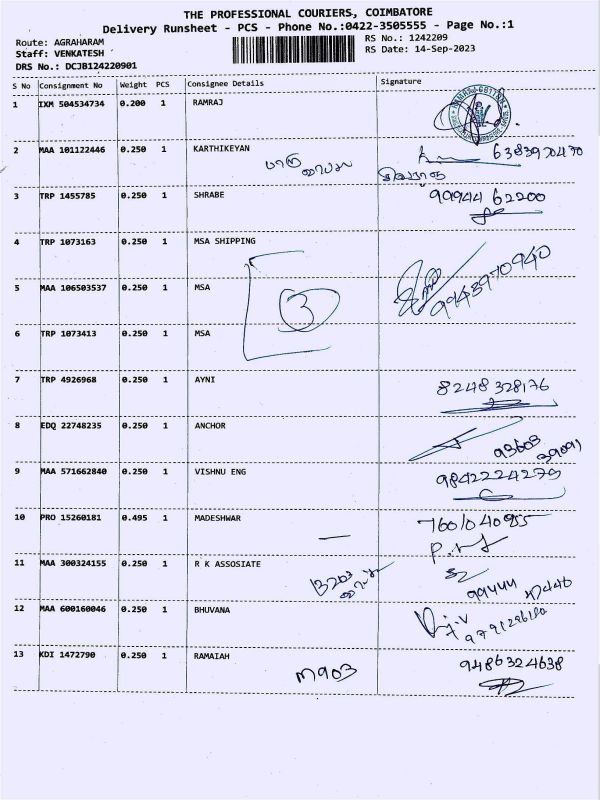 THE PROFESSIONAL COURIERS, COIMBATORE
Delivery Runsheet - PCS - Phone No.:0422-3505555 - Page No.:1
Route: AGRAHARAM RS No.: 1242209
Staff: VENKATESH RS Date: 14-Sep-2023
DRS No.: DCJB124220901
S No Consignment No Weight PCS Consignee Details Signature
1 IXM 504534734 0.200 1 RAMRAJ
2 MAA 101122446 0.250 1 KARTHIKEYAN 6383970470
3 TRP 1455785 0.250 1 SHRABE 99944 62200
4 TRP 1073163 0.250 1 MSA SHIPPING
5 MAA 106503537 0.250 1 MSA 3 9943970940
6 TRP 1073413 0.250 1 MSA
7 TRP 4926968 0.250 1 AYNI 8248328176
8 EDQ 22748235 0.250 1 ANCHOR 93603
39091
9 MAA 571662840 0.250 1 VISHNU ENG 9842224279
10 PRO 15260181 0.495 1 MADESHWAR 7601040955
11 MAA 300324155 0.250 1 R K ASSOSIATE
12 MAA 600160046 0.250 1 BHUVANA
13 KDI 1472790 0.250 1 RAMAIAH M903 9486324638